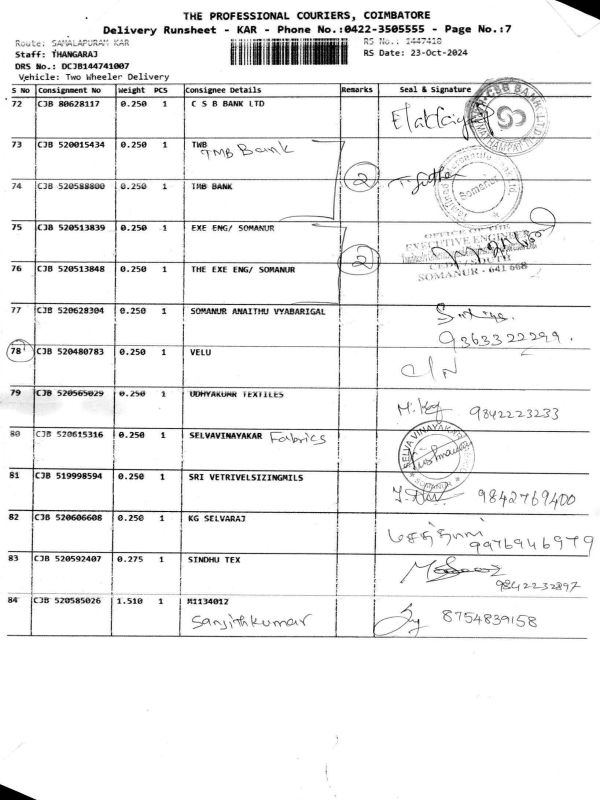 THE PROFESSIONAL COURIERS, COIMBATORE
Delivery Runsheet - KAR - Phone No.:0422-3505555 - Page No.:7
Route: SAMALAPURAM KAR
RS No.: 1447418
Staff: THANGARAJ
RS Date: 23-Oct-2024
DRS No.: DCJB144741007
Vehicle: Two Wheeler Delivery
S No Consignment No Weight PCS Consignee Details Remarks Seal & Signature
72 CJB 80628117 0.250 1 C S B BANK LTD
CSB BANK LTD
73 CJB 520015434 0.250 1 TWB
TMB Bank
2
Somanur
74 CJB 520588800 0.250 1 TMB BANK
75 CJB 520513839 0.250 1 EXE ENG/ SOMANUR
2
OFFICE OF THE
EXECUTIVE ENGINEER
SOMANUR - 641 668
76 CJB 520513848 0.250 1 THE EXE ENG/ SOMANUR
77 CJB 520628304 0.250 1 SOMANUR ANAITHU VYABARIGAL
9363322299.
78 CJB 520480783 0.250 1 VELU
C/N
79 CJB 520565029 0.250 1 UDHYAKUMR TEXTILES
9842223233
80 CJB 520615316 0.250 1 SELVAVINAYAKAR Fabrics
SELVA VINAYAKAR
SOMANUR
81 CJB 519998594 0.250 1 SRI VETRIVELSIZINGMILS
9842769400
82 CJB 520606608 0.250 1 KG SELVARAJ
9976946979
83 CJB 520592407 0.275 1 SINDHU TEX
9842232897
84 CJB 520585026 1.510 1 M1134012
Sanjithkumar
8754839158